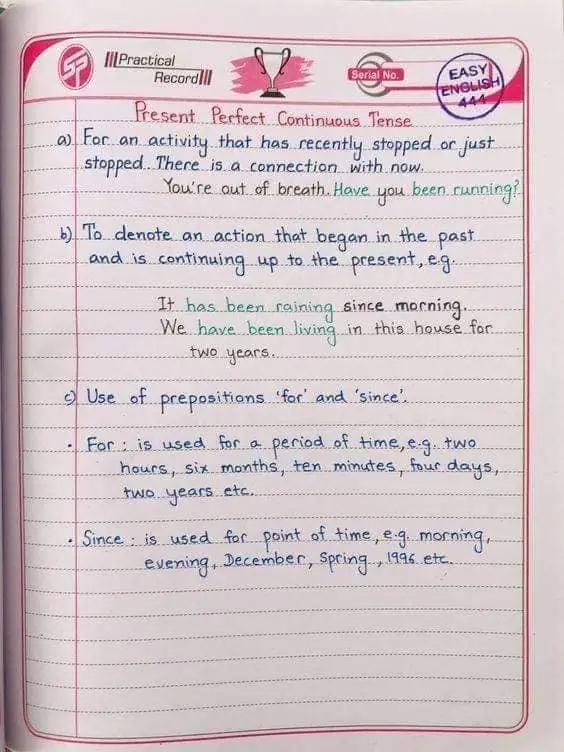 SF
Practical
Record
Serial No.
EASY
ENGLISH
444
Present Perfect Continuous Tense
a) For an activity that has recently stopped or just
stopped. There is a connection with now.
You're out of breath. Have you been running?
b) To denote an action that began in the past
and is continuing up to the present, e.g.
It has been raining since morning.
We have been living in this house for
two years.
c) Use of prepositions 'for' and 'since'.
• For : is used for a period of time, e.g. two
hours, six months, ten minutes, four days,
two years etc.
• Since : is used for point of time, e.g. morning,
evening, December, Spring, 1996 etc.